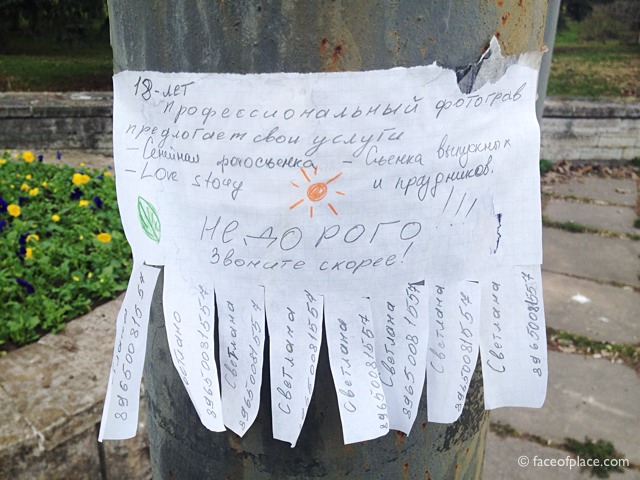 18-лет
Профессиональный фотограв
предлогает свои услуги
- Семейная фотосьенка - Сьенка выпускных
- Love story и праздников.
!!!
НЕДОРОГО
Звоните скорее!
89650081557
89650081557
Светлана
89650081557
Светлана
89650081557
Светлана
89650081557
Светлана
89650081557
Светлана
89650081557
Светлана
89650081557
© faceofplace.com